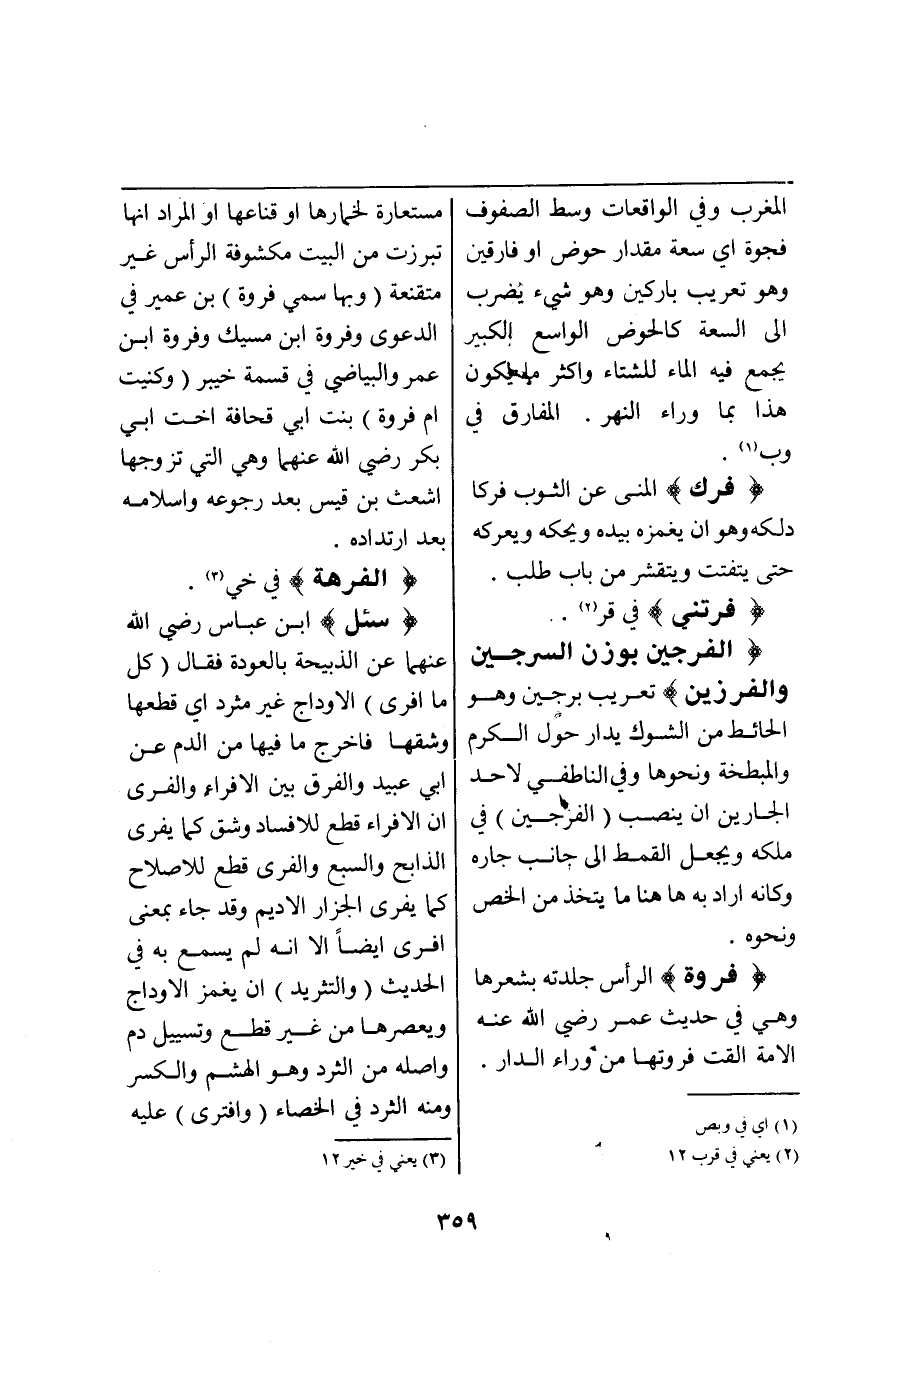 المغرب وفي الواقعات وسط الصفوف
فجوة اي سعة مقدار حوض او فارقين
وهو تعريب باركين وهو شيء يُضرب
الى السعة كالحوض الواسع الكبير
يجمع فيه الماء للشتاء واكثر ما يكون
هذا بما وراء النهر . المفارق في
وب(١) .
﴿ فرك ﴾ المنى عن الثوب فركا
دلكه وهو ان يغمزه بيده ويحكه ويعركه
حتى يتفتت ويتقشر من باب طلب .
﴿ فرتني ﴾ في قر(٢) .
﴿ الفرجين بوزن السرجـين
والفرزين ﴾ تعريب برجـين وهـو
الحائـط من الشوك يدار حول الـكرم
والمبطخة ونحوها وفي الناطفـي لاحـد
الجـارين ان ينصـب ( الفرجـين ) في
ملكه ويجعـل القمـط الى جانـب جاره
وكانه اراد به ها هنا ما يتخذ من الخص
ونحوه .
﴿ فروة ﴾ الرأس جلدته بشعرها
وهـي في حديث عمـر رضي الله عنـه
الامة القت فروتهـا من وراء الـدار .
(١) اي في وبص
(٢) يعني في قرب ١٢
مستعارة لخمارها او قناعها او المراد انها
تبرزت من البيت مكشوفة الرأس غـير
متقنعة ( وبها سمي فروة ) بن عمير في
الدعوى وفروة ابن مسيك وفروة ابـن
عمر والبياضي في قسمة خيبر ( وكنيت
ام فروة ) بنت ابي قحافة اخـت ابـي
بكر رضي الله عنهما وهي التي تزوجها
اشعث بن قيس بعد رجوعه واسلامـه
بعد ارتداده .
﴿ الفرهة ﴾ في خي(٣) .
﴿ سئل ﴾ ابـن عبـاس رضي الله
عنهما عن الذبيحة بالعودة فقـال ( كل
ما افرى ) الاوداج غير مثرد اي قطعها
وشقهـا فاخرج ما فيها من الدم عـن
ابي عبيد والفرق بين الافراء والفـرى
ان الافراء قطع للافساد وشق كما يفرى
الذابح والسبع والفرى قطع للاصلاح
كما يفرى الجزار الاديم وقد جاء بمعنى
افـرى ايضـاً الا انـه لم يسمـع به في
الحديث ( والتثريد ) ان يغمز الاوداج
ويعصرهـا من غـير قطـع وتسييل دم
واصله من الثرد وهـو الهشـم والـكسر
ومنه الثرد في الخصاء ( وافترى ) عليه
(٣) يعني في خير ١٢
٣٥٩